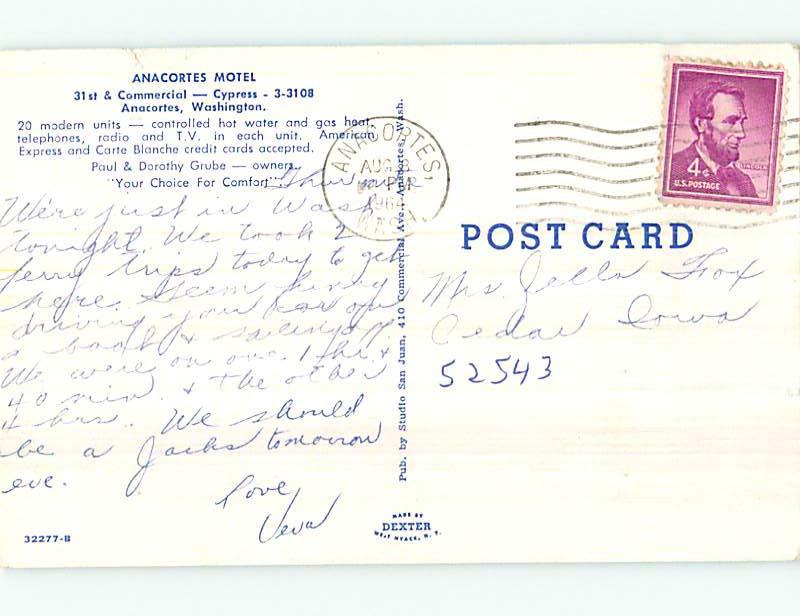 ANACORTES MOTEL
31st & Commercial — Cypress - 3-3108
Anacortes, Washington.
20 modern units — controlled hot water and gas heat,
telephones, radio and T.V. in each unit. American
Express and Carte Blanche credit cards accepted.
Paul & Dorothy Grube — owners.
"Your Choice For Comfort"
We're just in Wash
tonight. We took 2
ferry trips today to get
here. Seem funny
driving your car on
a boat & sailing off
We were on one 1 hr. &
40 min. & the other
4 hrs. We should
be a Jacks tomorrow
eve.
Love,
Veva
32277-B
Pub. by Studio San Juan, 410 Commercial Ave., Anacortes, Wash.
MADE BY
DEXTER
WEST NYACK, N.Y.
ANACORTES,
AUG
PM
WASH.
4¢
LINCOLN
U.S. POSTAGE
POST CARD
Mrs. Jella Fox
Cedar Iowa
52543